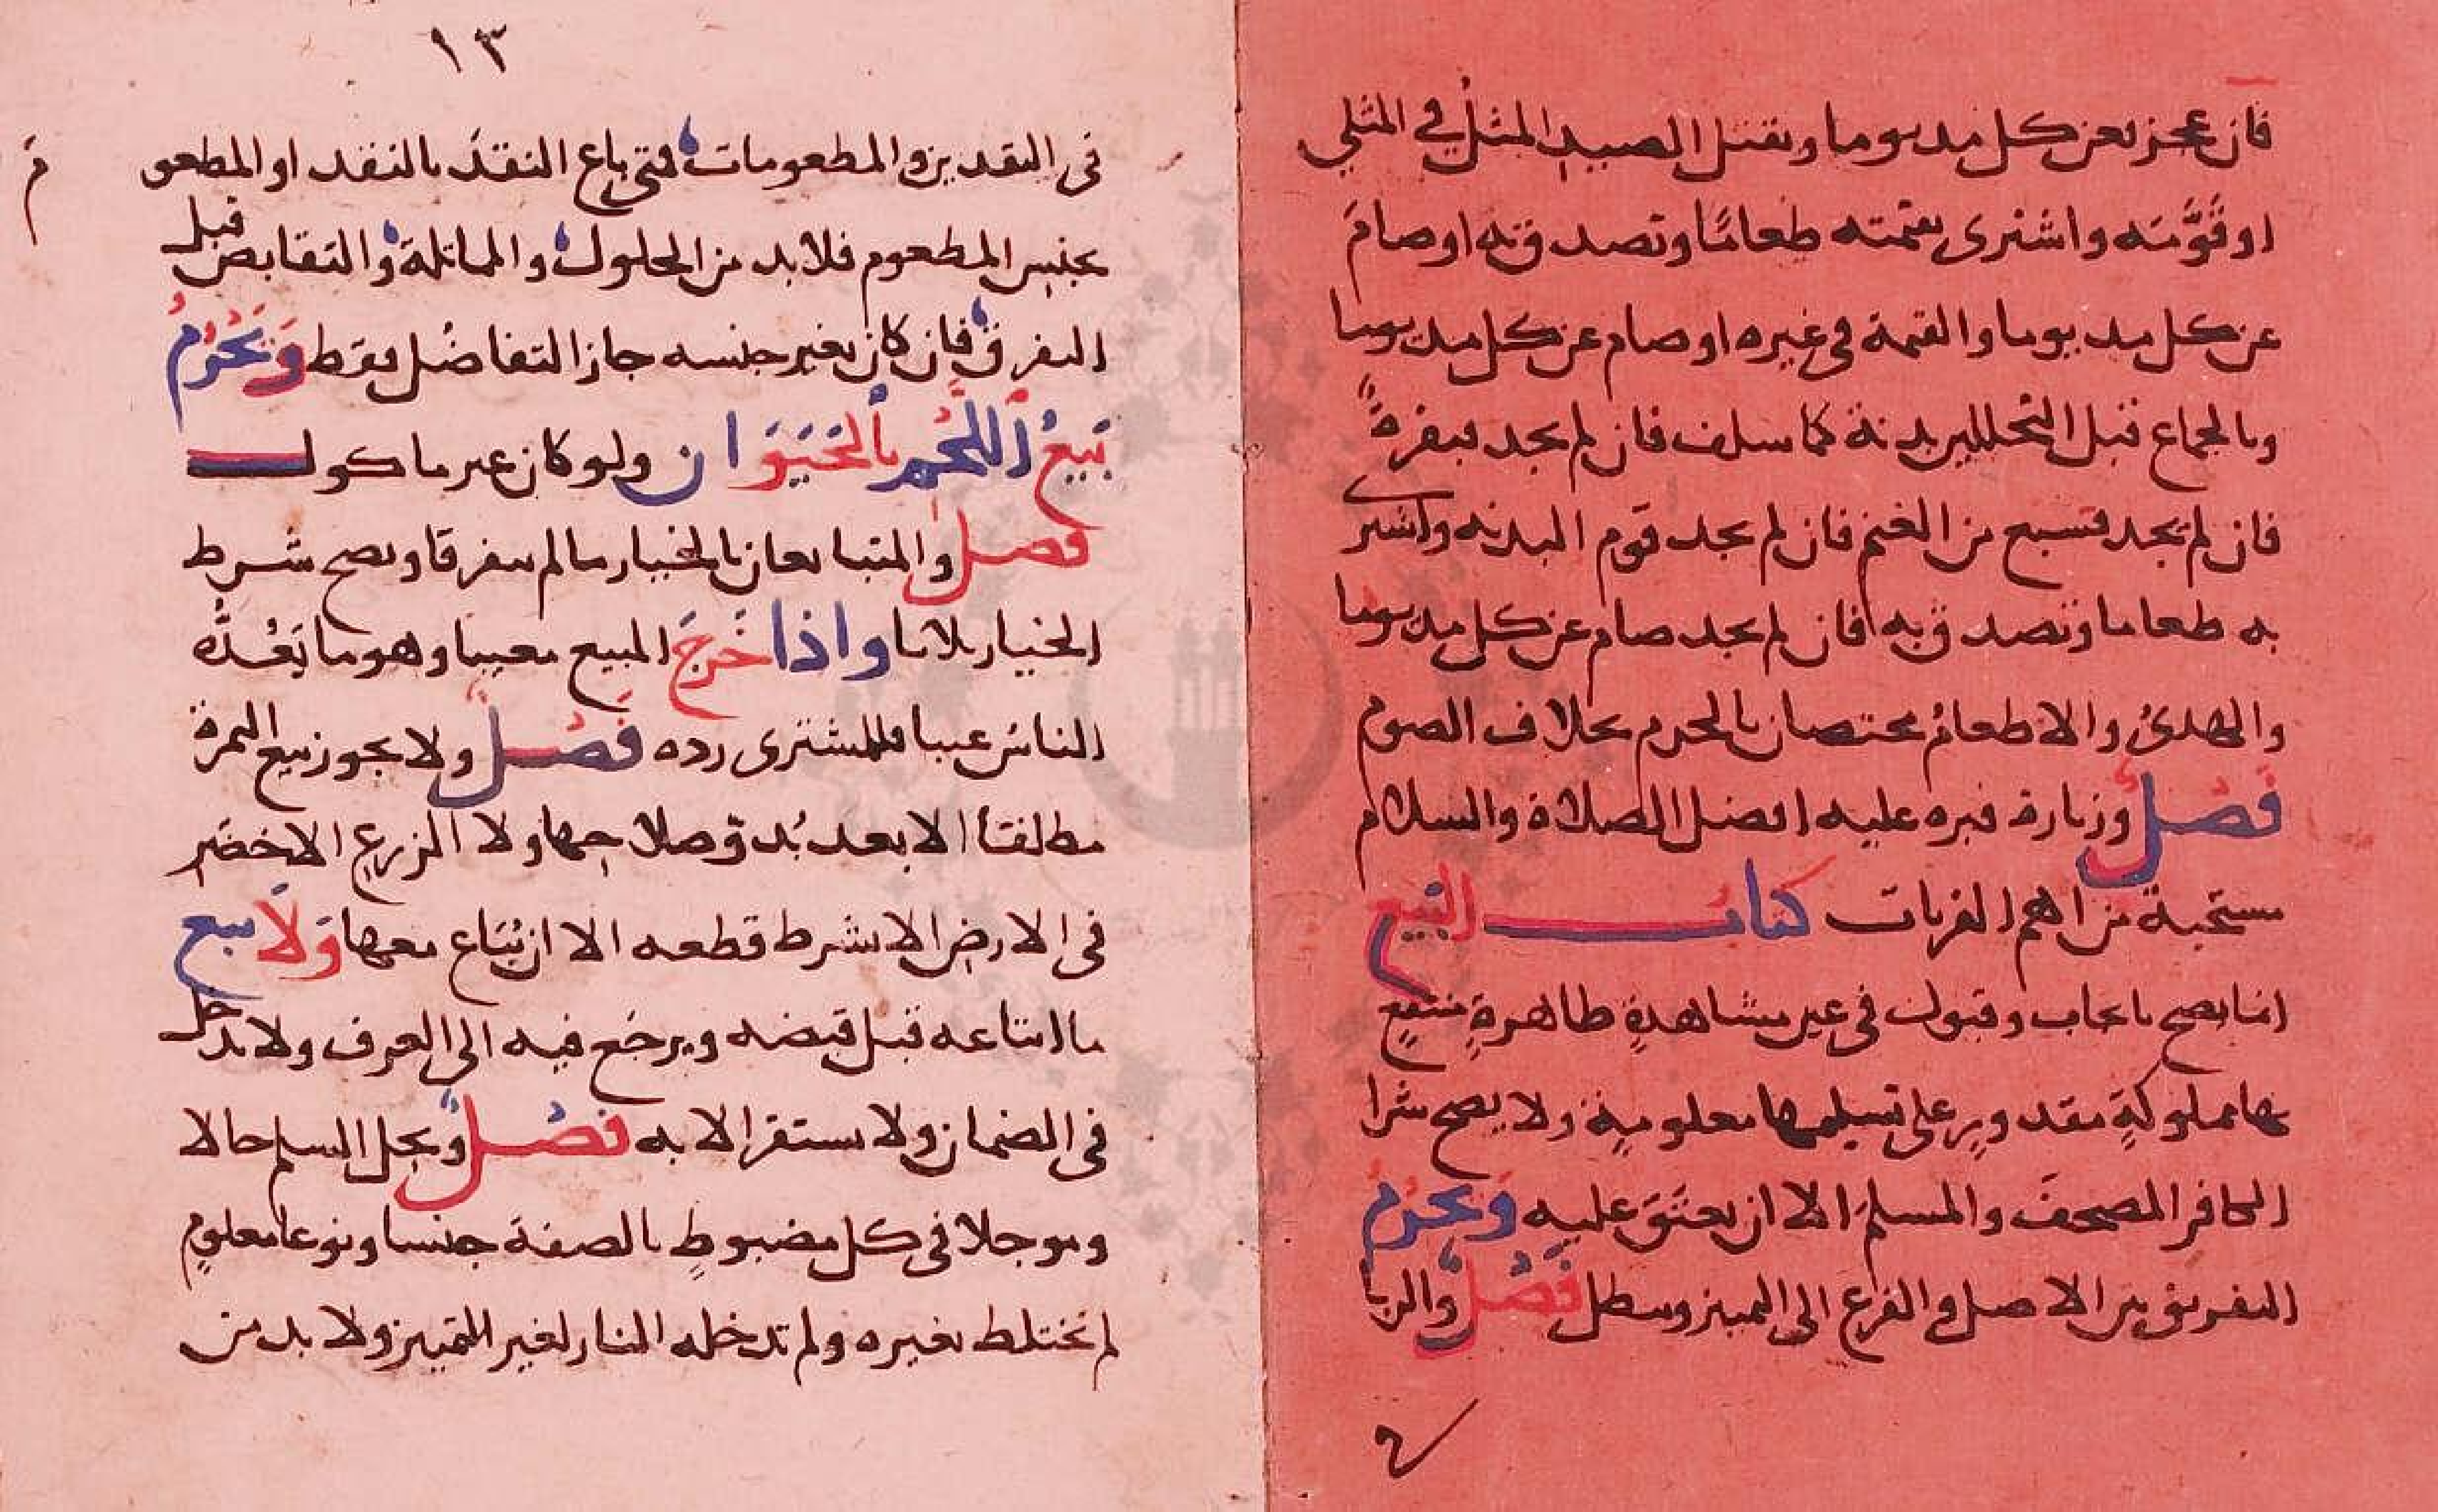 فان عجز فعن كل مد يوما وبقتل الصيد المثل في المثلي
او قَوَّمَه واشترى بقيمته طعامًا وتصدق به او صامَ
عن كل مد يوما والقيمة في غيره او صام عن كل مد يوما
وبالجماع قبل التحللين بدنة كما سلف فان لم يجد فبقرةً
فان لم يجد فسبع من الغنم فان لم يجد قوم البدنه واشترى
به طعاما وتصدق به فان لم يجد صام عن كل مد يوما
والهدىُ والاطعامُ مختصان بالحرم بخلاف الصوم
فَصْلٌ وزيارة قبره عليه افضل الصلاة والسلام
مستحبة من اهم القربات كتابُ البَيع
انما يصح بايجاب وقبول في عين مشاهدةٍ طاهرةٍ منتفعٍ
بها مملوكةٍ مقدورٍ على تسليمها معلومةٍ ولا يصح شرا
الكافر المصحفَ والمسلمَ الا ان يعتَقَ عليه وَيحرُمُ
التفريق بين الاصل والفرع الى التمييز ويبطل فَصْلٌ والربا
١٣
فى النقدين والمطعومات فمتى باع النقدَ بالنقد او المطعو
م
بجنس المطعوم فلابد من الحلول والمماثلة والتقابض قبل
التفرق فان كان بغير جنسه جاز التفاضُل فقط وَيَحْرُمُ
بَيعُ اللَّحْمِ بالحَيَوَان ولو كان غير ماكول
فصل والمتبايعان بالخيار ما لم يتفرقا ويصح شرط
الخيار ثلاثا واذا خَرجَ المبيع معيبا وهو ما يَعُدُّه
الناسُ عيبا فللمشترى رده فَصْلٌ ولا يجوز بيع الثمرة
مطلقًا الا بعد بُدوّ صلاحها ولا الزرع الاخضر
فى الارض الا بشرط قطعه الا ان يُبَاع معها وَلَا بيع
ما ابتاعه قبل قبضه ويرجع فيه الى العرف ولا يدخل
فى الضمان ولا يستقر الا به فصْلٌ ويحل السلم حالا
وموجلا فى كل مضبوطٍ بالصفة جنسا ونوعا معلومٍ
لم يختلط بغيره ولم تدخله النار لغير التمييز ولا بد من